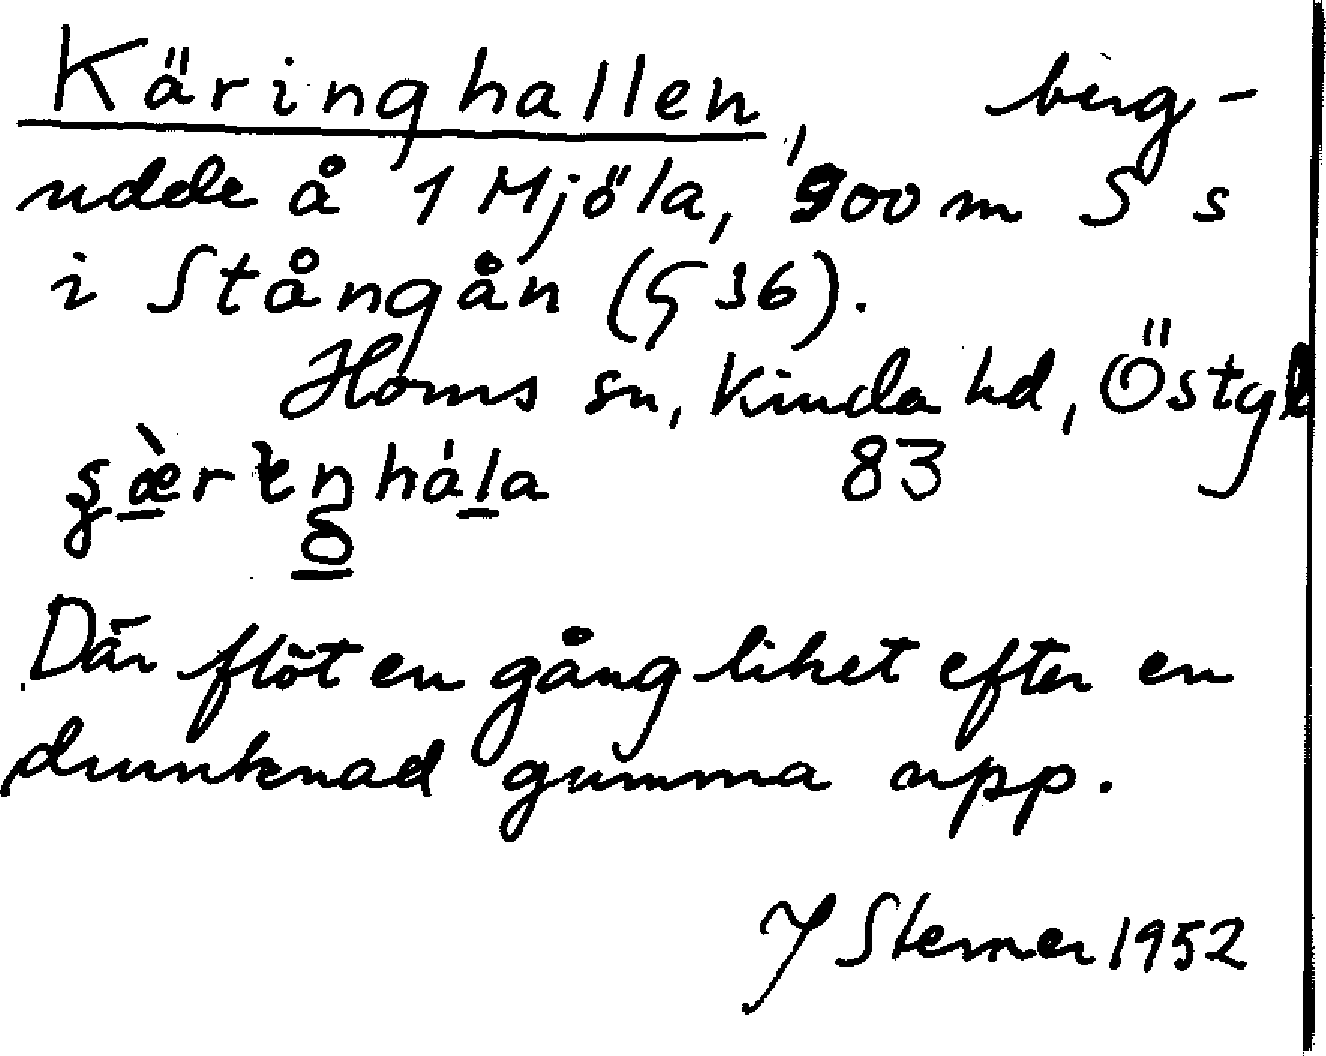 Käringhallen, berg-
udde å 1 Mjöla, 900 m S s
i Stångån (G 36).
Horns sn, Kinda hd, Östgl
83
Där flöt en gång liket efter en
drunknad gumma upp.
J Sterner 1952